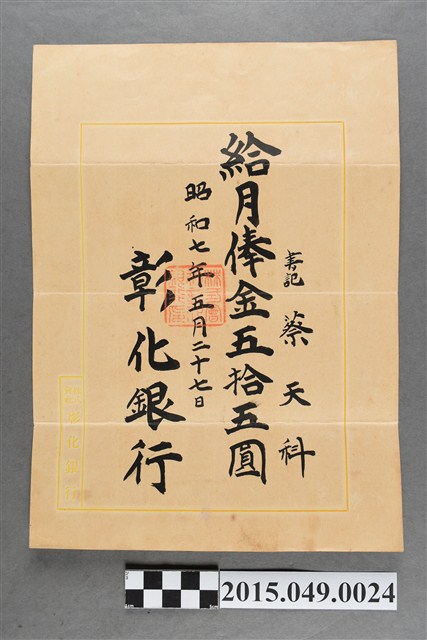 書記 蔡天科
給月俸金五拾五圓
昭和七年五月二十七日
彰化銀行
彰化銀行
2015.049.0024